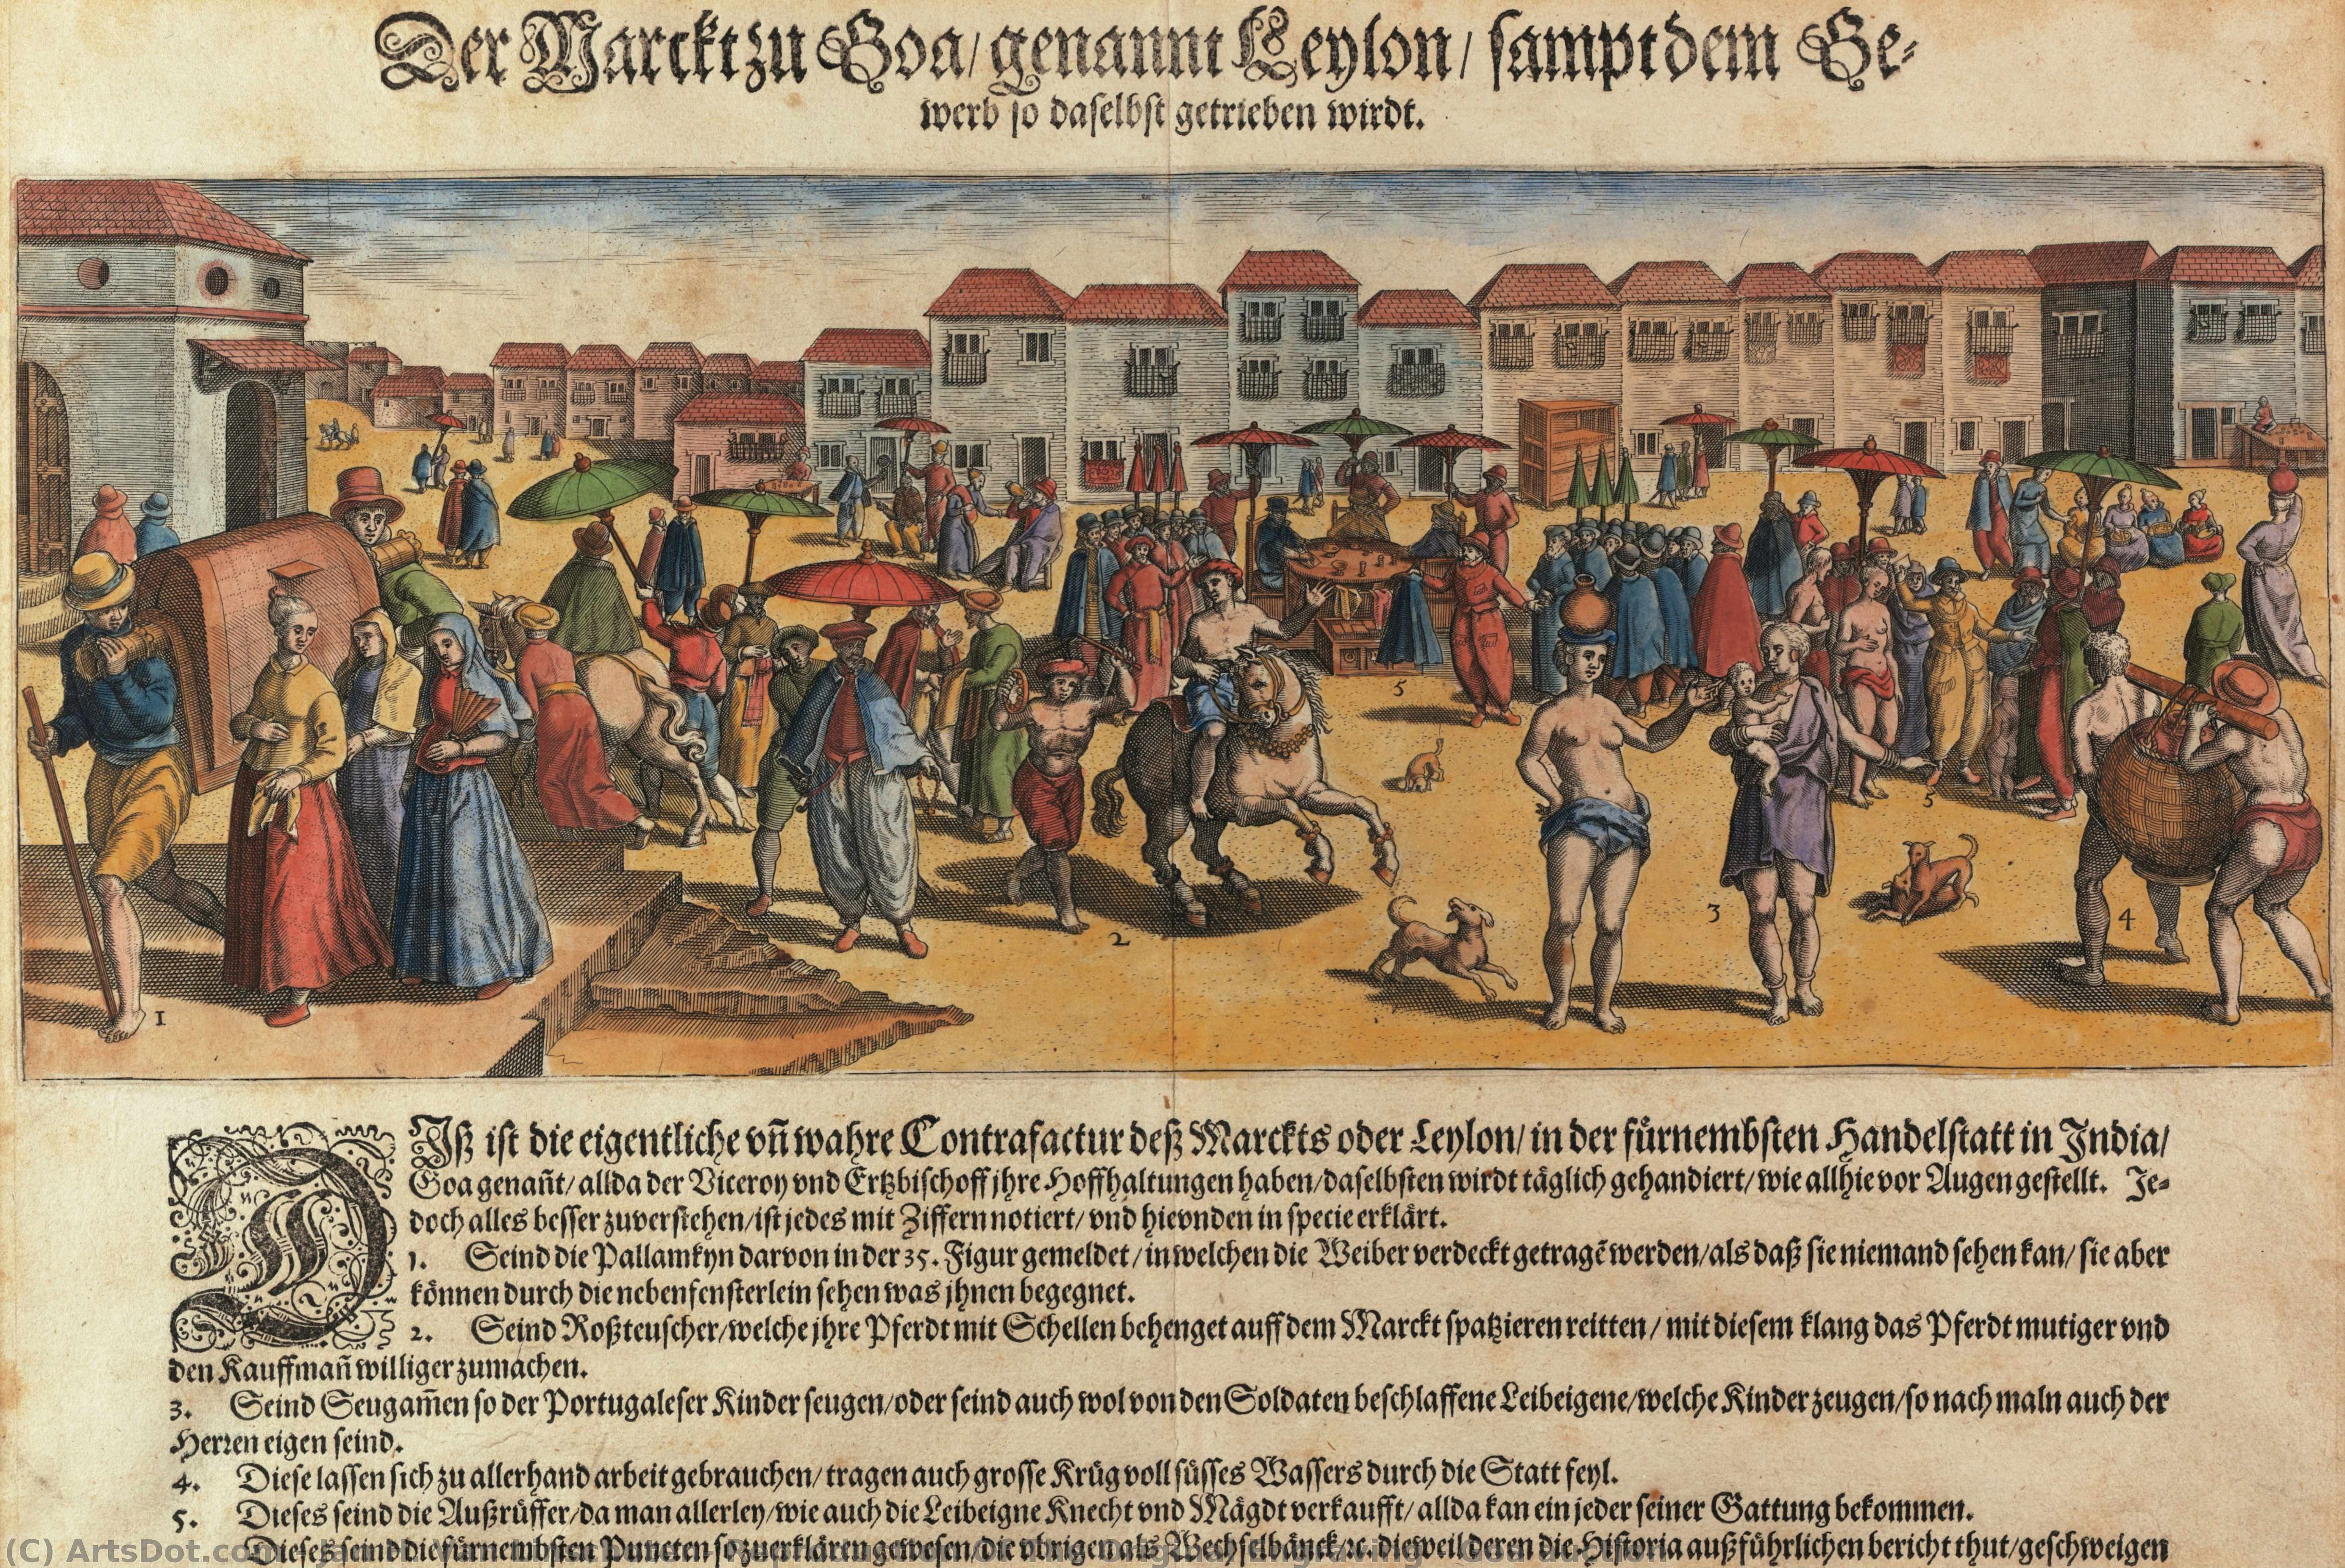 Der Marckt zu Goa/ genannt Leylon/ sampt dem Ge-
werb so daselbst getrieben wirdt.
1
2
3
4
5
5
DIß ist die eigentliche vñ wahre Contrafactur deß Marckts oder Leylon/ in der fürnembsten Handelstatt in India/
Goa genañt/ allda der Viceroy vnd Ertzbischoff jhre Hoffhaltungen haben/ daselbsten wirdt täglich gehandiert/ wie allhie vor Augen gestellt. Je-
doch alles besser zuverstehen/ ist jedes mit Ziffern notiert/ vnd hievnden in specie erklärt.
1. Seind die Pallamkyn darvon in der 35. Figur gemeldet/ in welchen die Weiber verdeckt getragē werden/ als daß sie niemand sehen kan/ sie aber
können durch die nebenfensterlein sehen was jhnen begegnet.
2. Seind Roßteuscher/ welche jhre Pferdt mit Schellen behenget auff dem Marckt spatzieren reitten/ mit diesem klang das Pferdt mutiger vnd
den Kauffmañ williger zumachen.
3. Seind Seugam̄en so der Portugaleser Kinder seugen/ oder seind auch wol von den Soldaten beschlaffene Leibeigene/ welche Kinder zeugen/ so nach maln auch der
Herren eigen seind.
4. Diese lassen sich zu allerhand arbeit gebrauchen/ tragen auch grosse Krüg voll süsses Wassers durch die Statt feyl.
5. Dieses seind die Außrüffer/ da man allerley/ wie auch die Leibeigne Knecht vnd Mägdt verkaufft/ allda kan ein jeder seiner Gattung bekommen.
Dieses seind die fürnembsten Puncten so zuerklären gewesen/ die vbrigen als Wechselbänck/ ꝛc. dieweil deren die Historia außführlichen bericht thut/ geschweigen
(C) ArtsDot.com